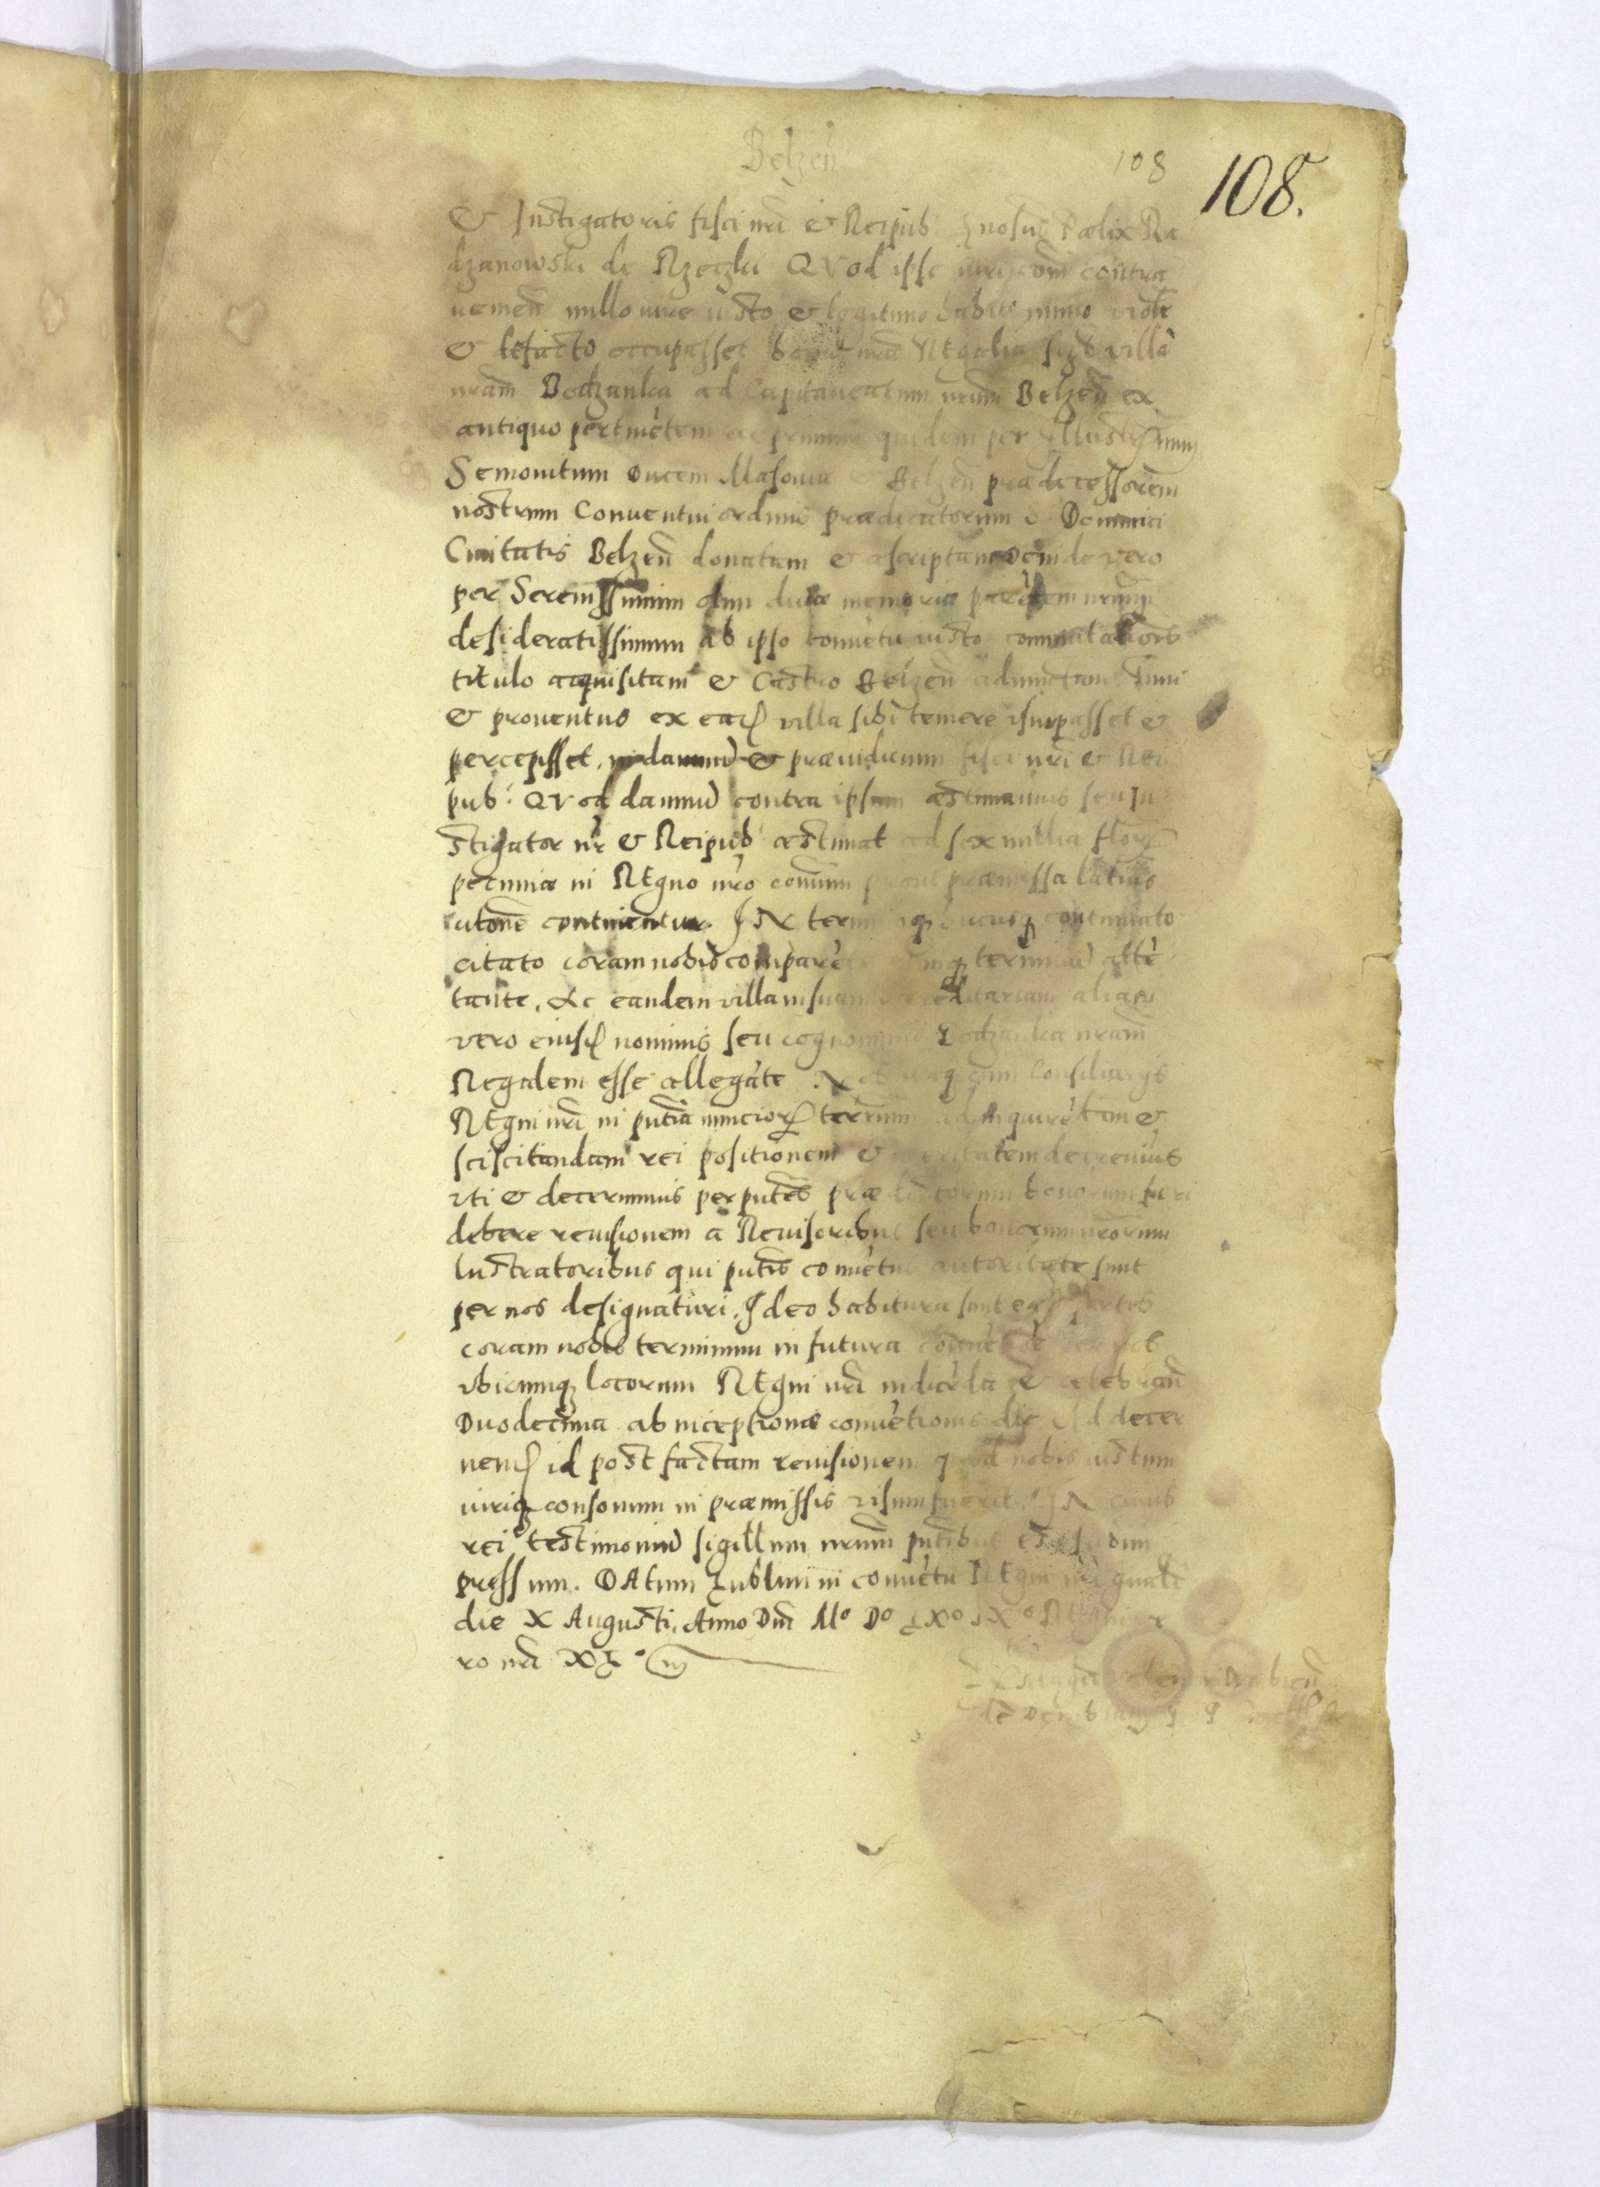 Belzeñ
108 108.
& Instigatoris fisci nrĩ & Reipub: Fælix Ra
dzanowski de Rzeczki QVod ipse iuri cõi contra
ueniẽn nullo iure iusto & legitimo habito nimio
& defacto occupasset bona nr̃a REgalia villã
nram̃ Bodzanka ad Capitaneatum nrũm Belzeñ ex
antiquo pertinẽtem ac primum quidem per Illustrissimum
Semouitum Ducem Masouiæ & Belzeñ prædecessorem
nostrum Conuentui ordinis prædicatorum S. Dominici
Ciuitatis Belzeñ donatam & ascriptam Deinde vero
per Serenissimum olim diuæ memoriæ parẽtem nrũm
desideratissimum ab ipso conuẽtu iusto commutationis
titulo acquisitam & Castro Belzeñ adiunctam
& prouentus ex eadẽ villa sibi temere vsurpasset &
percepisset, in damnũ & præiudicium fisci nrĩ & Rei
pub: QVod damnũ contra ipsum æstimamus seu In
stigator nr̃ & Reipub: æstimat ad sex millia floꝝ
pecuniæ in REgno nrõ coñmum præmissa latius
citatoñe continentur. IN termino contumato
citato coram nobis comparẽte terminũ attẽ
tante. Ac eandem villam suam hæreditariam aliam
vero eiusdẽ nominis seu cognominis Bodzanka nram̃
Regalem esse allegãte. Nos cum Consiliarijs
REgni nrĩ in pñtia nunciorꝝ terrarum ad inquirẽdam &
sciscitandam rei positionem & veritatem decreuim⁹
vti & decernimus per pñtes prædictorum bonorum fieri
debere reuisionem a Reuisoribus seu bonorum nrõrum
lustratoribus qui pñtis conuẽtus autoritate sunt
per nos designaturi. Ideo habituræ sunt eædẽ partes
coram nobis terminum in futura conuẽtione
vbicumqꝫ locorum REgni nrĩ indicẽda & celebrañ
Duodecima ab inceptione conuẽtionis die Ad decer
nenđ id post factam reuisionem quod nobis iustum
iuriqꝫ consonum in præmissis visum fuerit. IN cuius
rei testimoniũ sigillum nrũm pñtibus est subim
pressum. DAtum Lublini in conuẽtu REgni nrĩ gnãli
die X Augusti, Anno Dñi Mº Dº LXº IXº Regni ve
ro nrĩ XLº